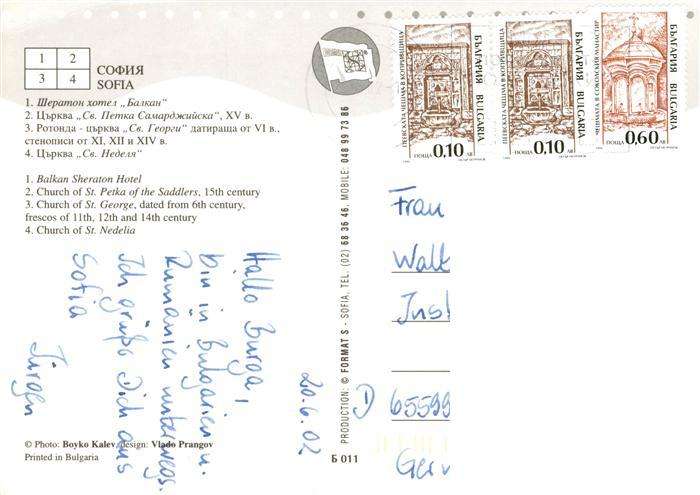 1 2
3 4
СОФИЯ
SOFIA
1. Шератон хотел „Балкан“
2. Църква „Св. Петка Самарджийска“, XV в.
3. Ротонда - църква „Св. Георги“ датираща от VI в.,
стенописи от XI, XII и XIV в.
4. Църква „Св. Неделя“
1. Balkan Sheraton Hotel
2. Church of St. Petka of the Saddlers, 15th century
3. Church of St. George, dated from 6th century,
frescos of 11th, 12th and 14th century
4. Church of St. Nedelia
Hallo Burga,
bin in Bulgarien u.
Rumänien unterwegs.
Ich grüße Dich aus
Sofia
Jürgen
20.6.02
© Photo: Boyko Kalev, design: Vlado Prangov
Printed in Bulgaria
PRODUCTION: © FORMAT S - SOFIA, TEL. (02) 68 36 46, MOBILE: 048 99 73 86
Б 011
ПЕЕВСКАТА ЧЕШМА В КОПРИВЩИЦА
БЪЛГАРИЯ BULGARIA
ПОЩА 0,10 ЛВ
ПЕЕВСКАТА ЧЕШМА В КОПРИВЩИЦА
БЪЛГАРИЯ BULGARIA
ПОЩА 0,10 ЛВ
ЧЕШМАТА В СОКОЛСКИЯ МАНАСТИР
БЪЛГАРИЯ BULGARIA
ПОЩА 0,60 ЛВ
Frau
Walt
Inst
D 65599
Ger